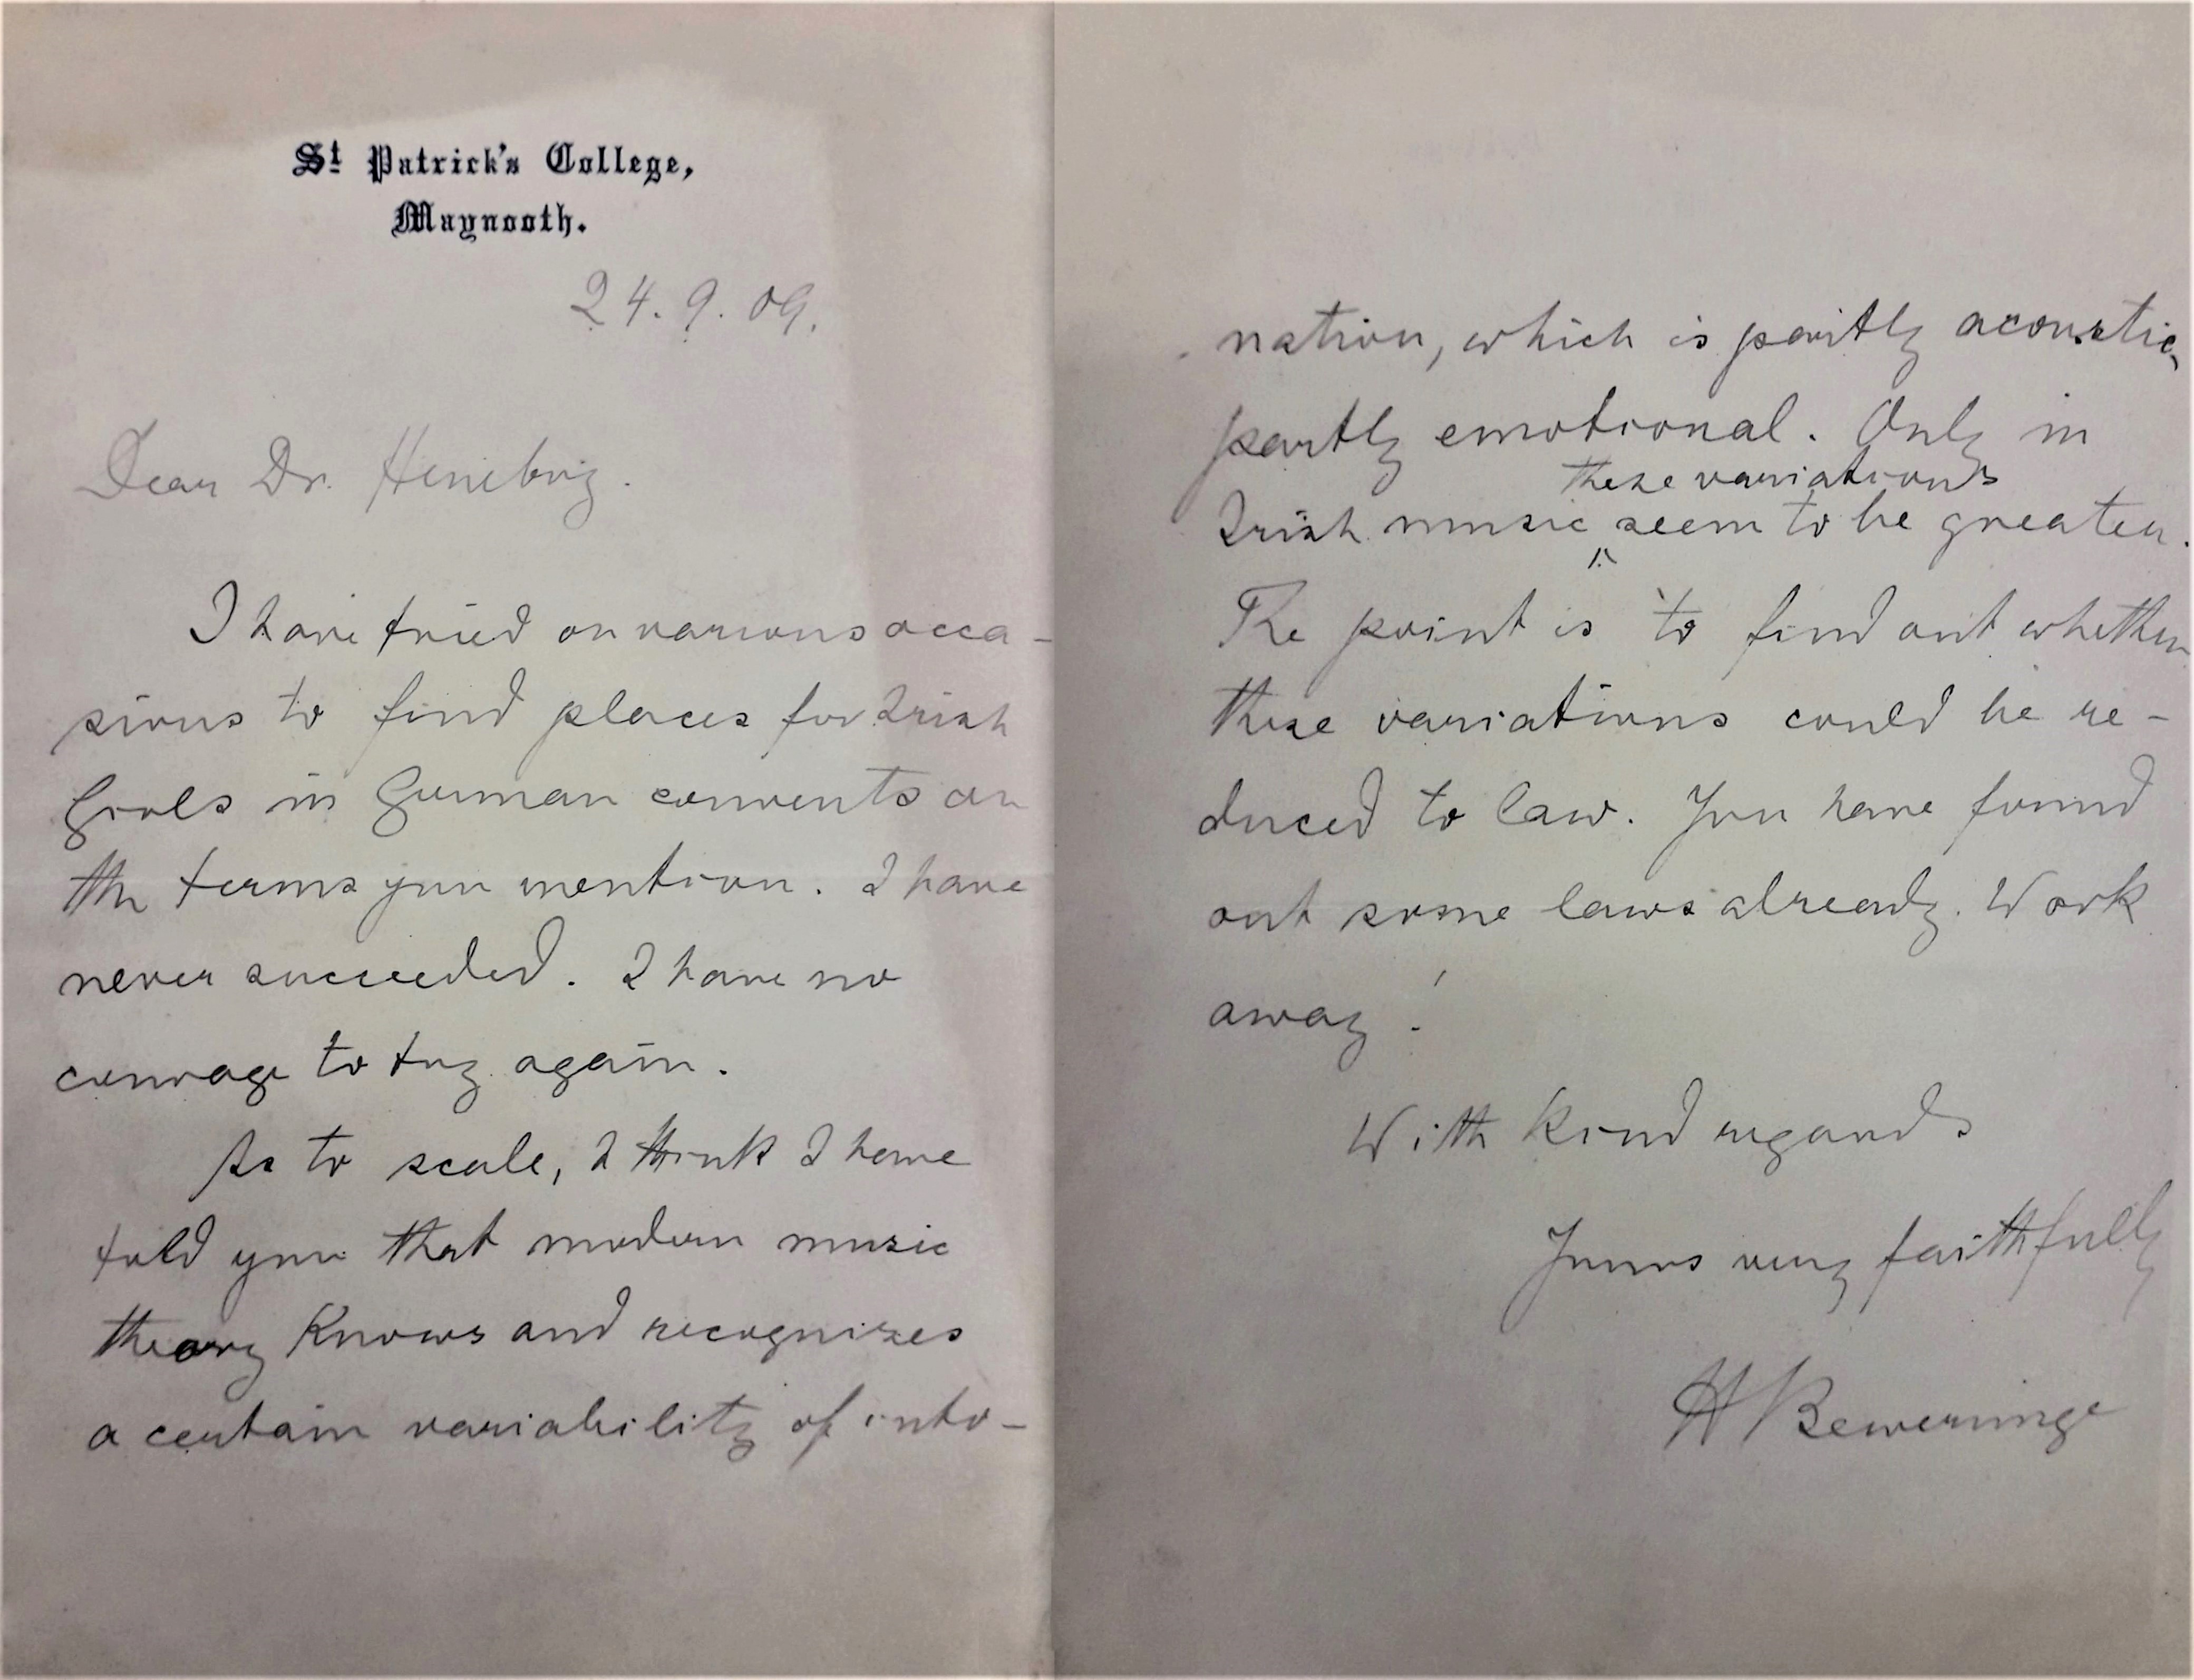 St Patrick's College,
Maynooth.
24. 9. 09.
Dear Dr. Henebry.
I have tried on various occa-
sions to find places for Irish
Girls in German convents on
the terms you mention. I have
never succeeded. I have no
courage to try again.
As to scale, I think I have
told you that modern music
theory knows and recognizes
a certain variability of into-
nation, which is partly acoustic,
partly emotional. Only in
these variations
Irish music seem to be greater.
The point is to find out whether
these variations could be re-
duced to law. You have found
out some laws already. Work
away!
With kind regards
Yours very faithfully
H Bewerunge